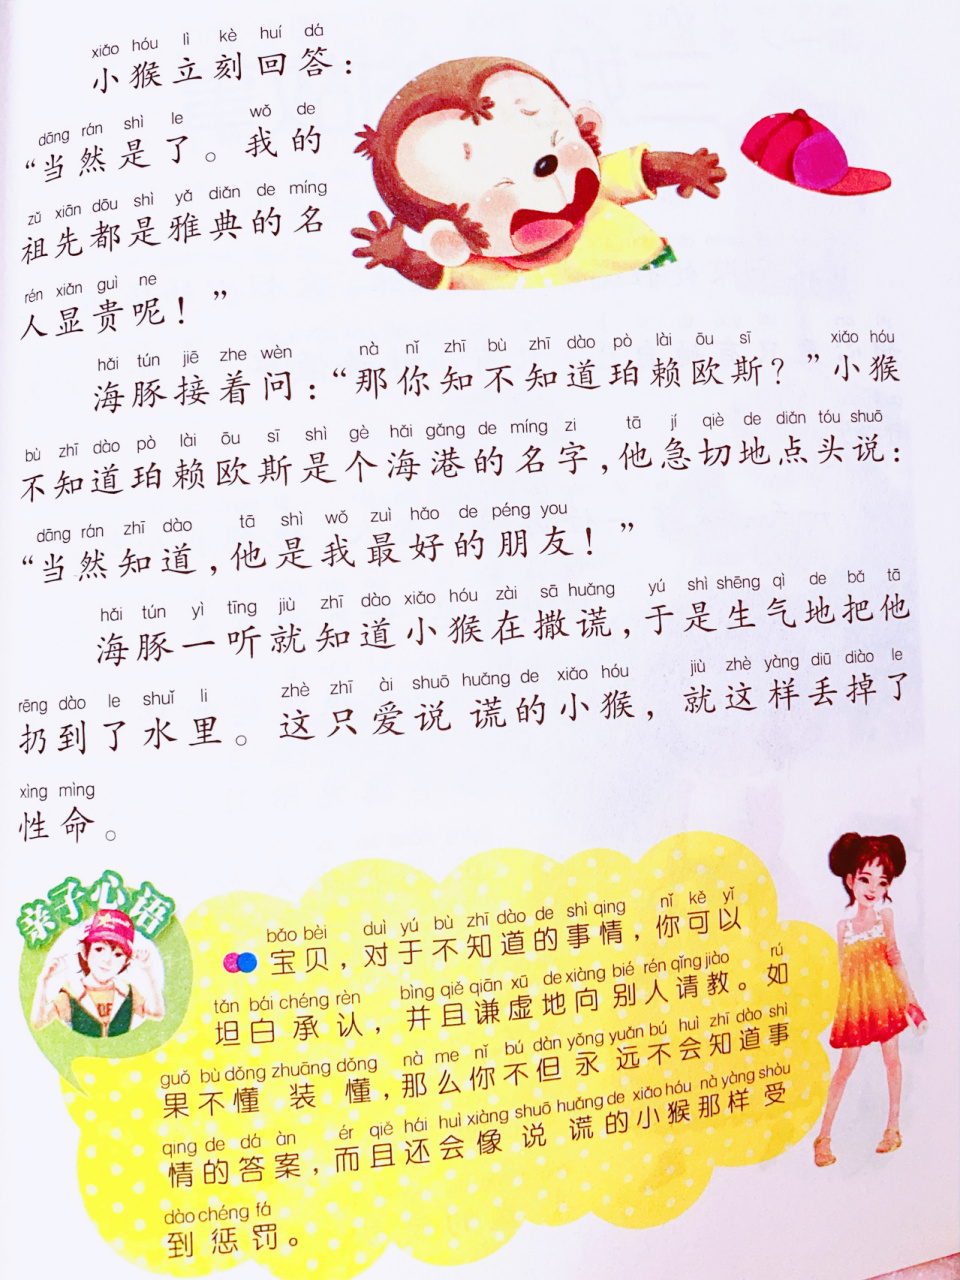 xiǎo hóu lì kè huí dá
小猴立刻回答：
dāng rán shì le wǒ de
“当然是了。我的
zǔ xiān dōu shì yǎ diǎn de míng
祖先都是雅典的名
rén xiǎn guì ne
人显贵呢！”
hǎi tún jiē zhe wèn nà nǐ zhī bù zhī dào pò lài ōu sī xiǎo hóu
海豚接着问：“那你知不知道珀赖欧斯？”小猴
bù zhī dào pò lài ōu sī shì gè hǎi gǎng de míng zi tā jí qiè de diǎn tóu shuō
不知道珀赖欧斯是个海港的名字，他急切地点头说：
dāng rán zhī dào tā shì wǒ zuì hǎo de péng you
“当然知道，他是我最好的朋友！”
hǎi tún yì tīng jiù zhī dào xiǎo hóu zài sā huǎng yú shì shēng qì de bǎ tā
海豚一听就知道小猴在撒谎，于是生气地把他
rēng dào le shuǐ li zhè zhī ài shuō huǎng de xiǎo hóu jiù zhè yàng diū diào le
扔到了水里。这只爱说谎的小猴，就这样丢掉了
xìng mìng
性命。
亲子心语
bǎo bèi duì yú bù zhī dào de shì qing nǐ kě yǐ
宝贝，对于不知道的事情，你可以
tǎn bái chéng rèn bìng qiě qiān xū de xiàng bié rén qǐng jiào rú
坦白承认，并且谦虚地向别人请教。如
guǒ bù dǒng zhuāng dǒng nà me nǐ bú dàn yǒng yuǎn bú huì zhī dào shì
果不懂装懂，那么你不但永远不会知道事
qing de dá àn ér qiě hái huì xiàng shuō huǎng de xiǎo hóu nà yàng shòu
情的答案，而且还会像说谎的小猴那样受
dào chéng fá
到惩罚。